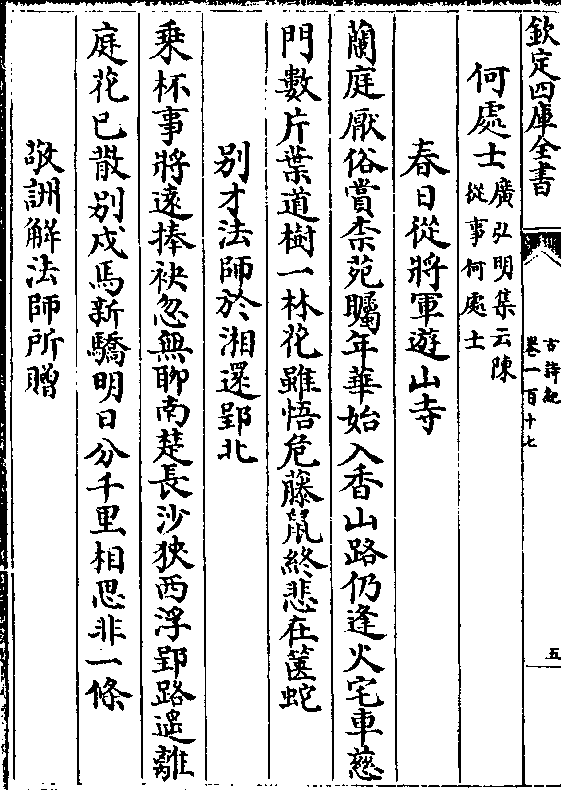 欽定四庫全書
古詩紀
卷一百十七
五
何處士廣弘明集云陳
從事何處士
春日從將軍遊山寺
蘭庭厭俗賞柰苑矚年華始入香山路仍逢火宅車慈
門數片葉道樹一林花雖悟危藤鼠終悲在篋蛇
別才法師於湘還郢北
乘杯事將遠捧袂忽無聊南楚長沙狹西浮郢路遥離
庭花已散别戍馬新驕明日分千里相思非一條
敬詶解法師所贈